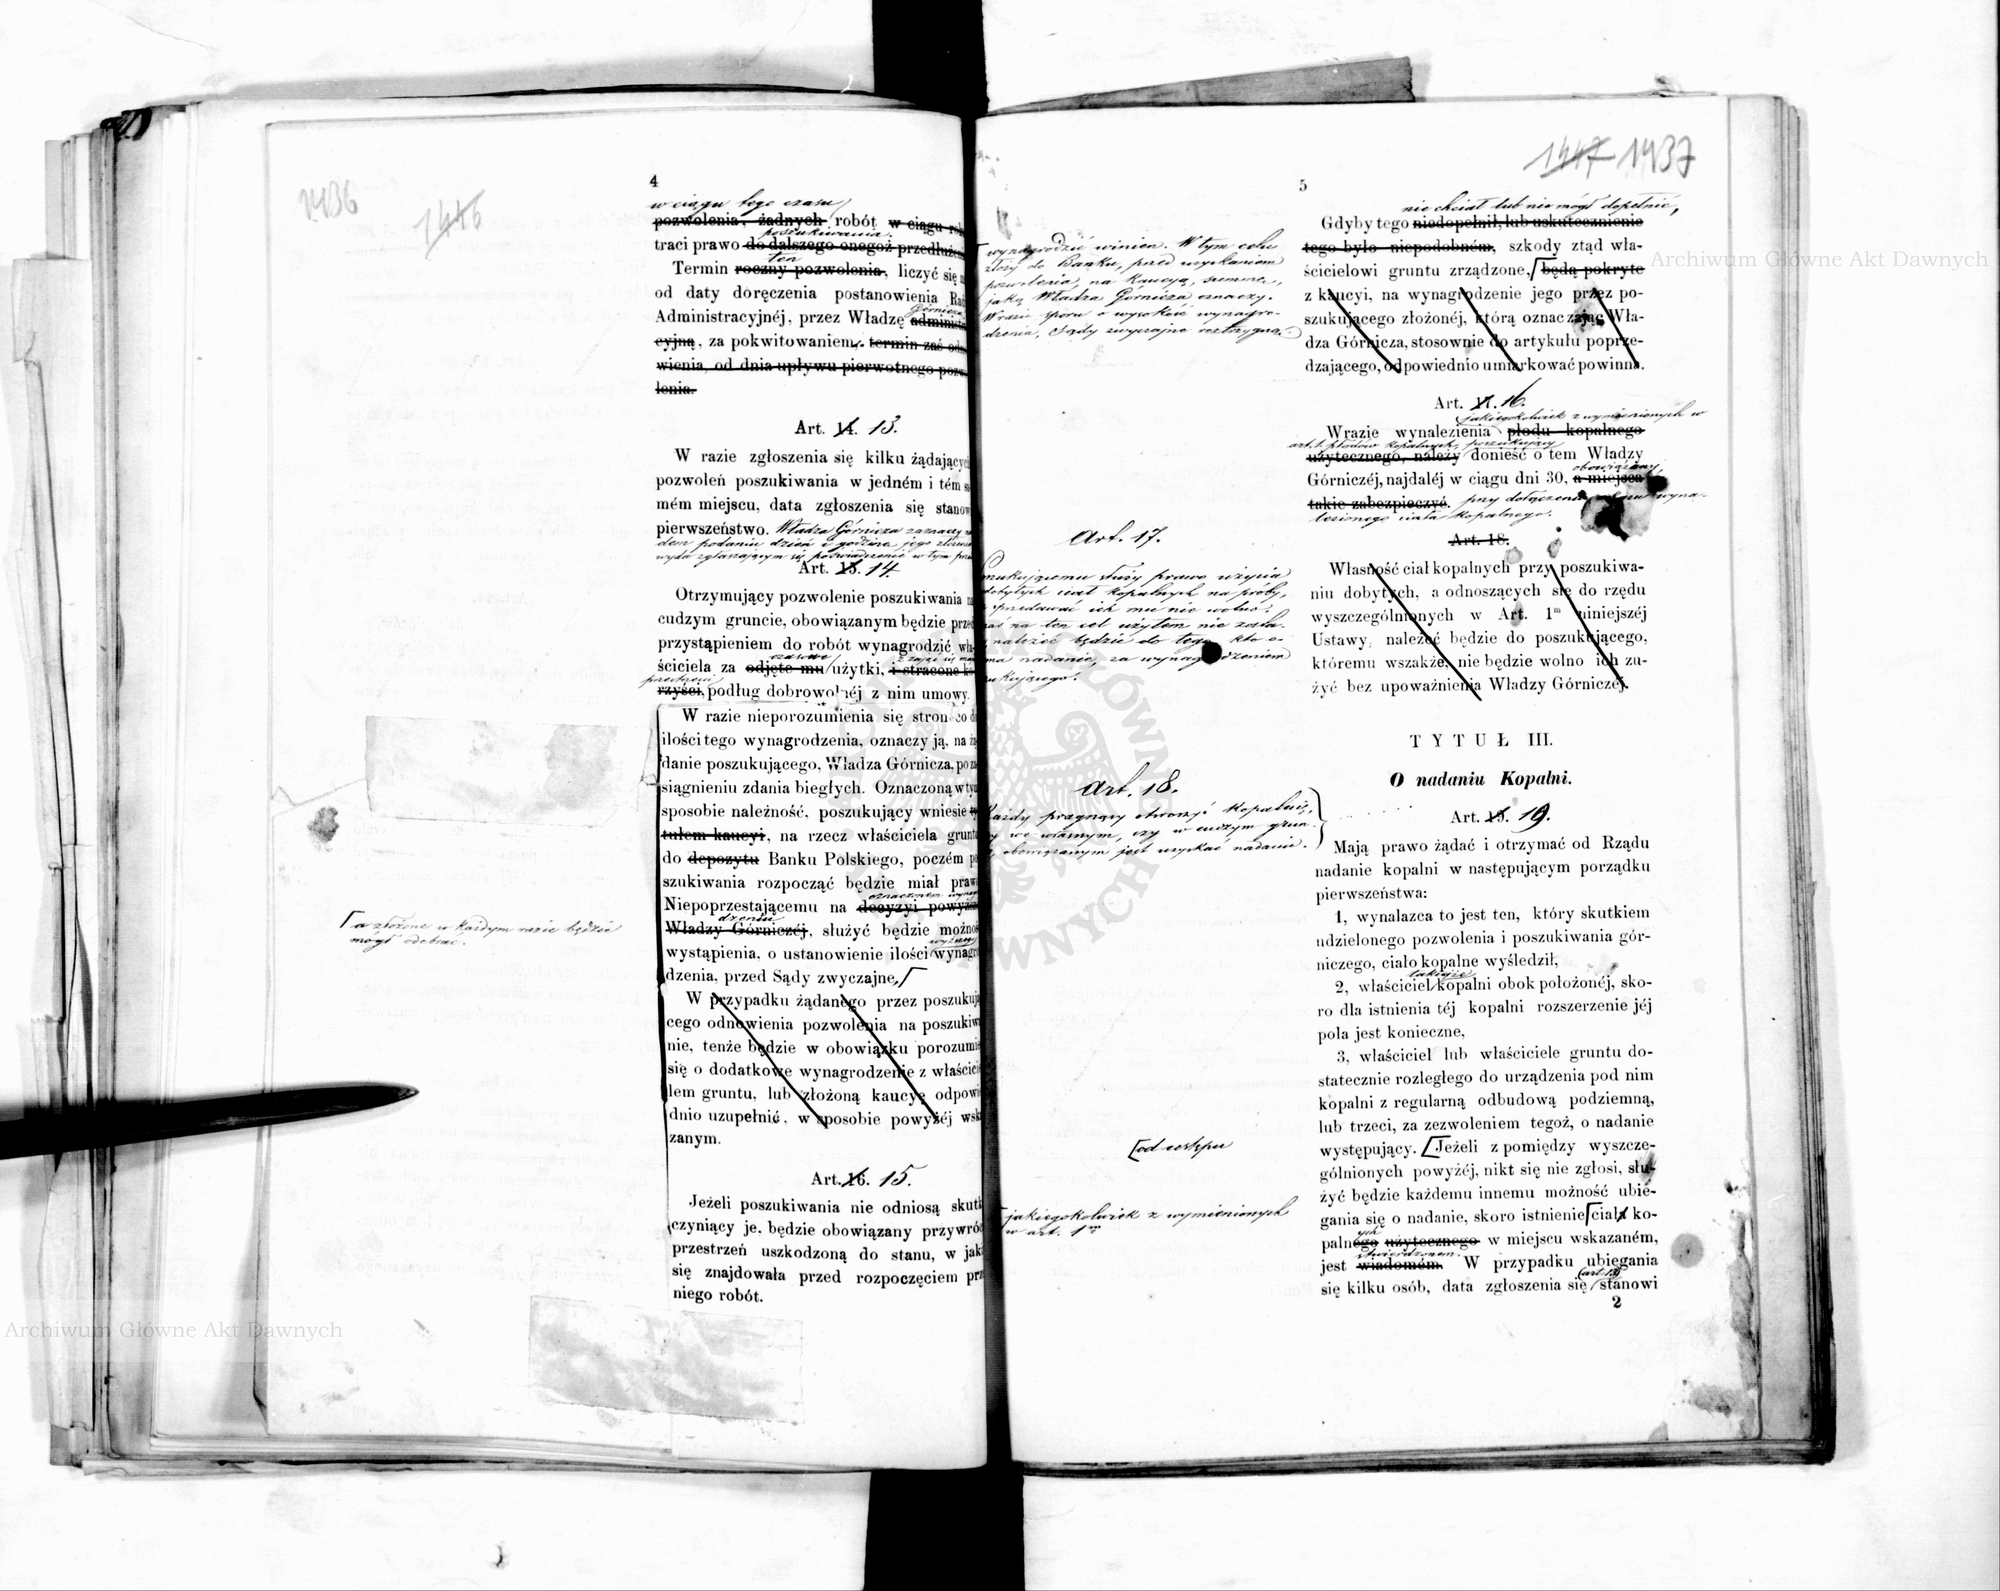 1436
1446
4
w ciągu tego czasu
pozwolenia, żadnych robót w ciągu
poszukiwania.
traci prawo do dalszego onegoż
ten
Termin roczny pozwolenia, liczyć się
od daty doręczenia postanowienia
Administracyjnéj, przez Władzę
Górniczą
cyjną, za pokwitowaniem, termin zaś
wienia, od dnia upływu pierwotnego
lenia.
Art. 14. 13.
W razie zgłoszenia się kilku żądających
pozwoleń poszukiwania w jedném i tém
mém miejscu, data zgłoszenia się
pierwszeństwo. Władza Górnicza zaznaczy
podaniu dzień i godzinę jego
wyda zgłaszającym się poświadczenie w tym
Art. 15. 14.
Otrzymujący pozwolenie poszukiwania
cudzym gruncie, obowiązanym będzie
przystąpieniem do robót wynagrodzić
czasowe
ściciela za odjęte mu użytki, i stracone
przestrzeni
rzyści, podług dobrowolnéj z nim umowy.
W razie nieporozumienia się stron co
ilości tego wynagrodzenia, oznaczy ją, na
danie poszukującego, Władza Górnicza, po
siągnieniu zdania biegłych. Oznaczoną w
sposobie należność, poszukujący wniesie
tułem kaucyi, na rzecz właściciela
do depozytu Banku Polskiego, poczém
szukiwania rozpocząć będzie miał
oznaczonem
Niepoprzestającemu na decyzyi
dzeniu
Władzy Górniczéj, służyć będzie
wystąpienia, o ustanowienie ilości
dzenia, przed Sądy zwyczajne,
a złożone w każdym razie będzie
mógł odebrać.
W przypadku żądanego przez
cego odnowienia pozwolenia na
nie, tenże będzie w obowiązku
się o dodatkowe wynagrodzenie z
lem gruntu, lub złożoną kaucyę
dnio uzupełnić, w sposobie powyżéj
zanym.
Art. 16. 15.
Jeżeli poszukiwania nie odniosą
czyniący je, będzie obowiązany
przestrzeń uszkodzoną do stanu, w
się znajdowała przed rozpoczęciem
niego robót.
1447 1437
5
nie chciał lub nie mógł dopełnić,
Gdyby tego niedopełnił, lub uskutecznienie
tego było niepodobném, szkody ztąd wła-
ścicielowi gruntu zrządzone, będą pokryte
z kaucyi, na wynagrodzenie jego przez po-
szukującego złożonéj, którą oznaczając Wła-
dza Górnicza, stosownie do artykułu poprze-
dzającego, odpowiednio umiarkować powinna.
wynagrodzić winien. W tym celu
złoży do Banku, przed uzyskaniem
pozwolenia, na kaucyą, summę,
jaką Władza Górnicza oznaczy.
W razie sporu o wysokość wynagro-
dzenia, Sądy zwyczajne
Art. 17. 16.
jakiegokolwiek z wymienionych w
Wrazie wynalezienia płodu kopalnego
art. 1. płodów kopalnych, poszukujący
użytecznego, należy donieść o tem Władzy
obowiązany,
Górniczéj, najdaléj w ciągu dni 30, a miejsce
takie zabezpieczyć. przy dołączeniu
lezionego ciała kopalnego.
Art. 18.
Własność ciał kopalnych przy poszukiwa-
niu dobytych, a odnoszących się do rzędu
wyszczególnionych w Art. 1m niniejszéj
Ustawy, należeć będzie do poszukującego,
któremu wszakże, nie będzie wolno ich zu-
żyć bez upoważnienia Władzy Górniczéj.
Art. 17.
szukującemu służy prawo użycia
dobytych ciał kopalnych na próby,
sprzedawać ich mu nie wolno:
na ten cel użytem nie
należeć będzie do tego, kto o-
nadanie, za wynagrodzeniem
szukującego.
TYTUŁ III.
O nadaniu Kopalni.
Art. 18.
Każdy pragnący otworzyć kopalnię,
we własnym, czy w cudzym grun-
obowiązanym jest uzyskać nadanie.
Art. 19.
Mają prawo żądać i otrzymać od Rządu
nadanie kopalni w następującym porządku
pierwszeństwa:
1, wynalazca to jest ten, który skutkiem
udzielonego pozwolenia i poszukiwania gór-
niczego, ciało kopalne wyśledził,
takiéjże
2, właściciel kopalni obok położonéj, sko-
ro dla istnienia téj kopalni rozszerzenie jéj
pola jest konieczne,
3, właściciel lub właściciele gruntu do-
statecznie rozległego do urządzenia pod nim
kopalni z regularną odbudową podziemną,
lub trzeci, za zezwoleniem tegoż, o nadanie
występujący. Jeżeli z pomiędzy wyszcze-
od ustępu
gólnionych powyżéj, nikt się nie zgłosi, słu-
żyć będzie każdemu innemu możność ubie-
gania się o nadanie, skoro istnienie ciała ko-
jakiegokolwiek z wymienionych
w art. 1m
ych
palnego użytecznego w miejscu wskazaném,
stwierdzonem.
jest wiadomém. W przypadku ubiegania
(art. 13)
się kilku osób, data zgłoszenia się stanowi
2
Archiwum Główne Akt Dawnych
Archiwum Główne Akt Dawnych